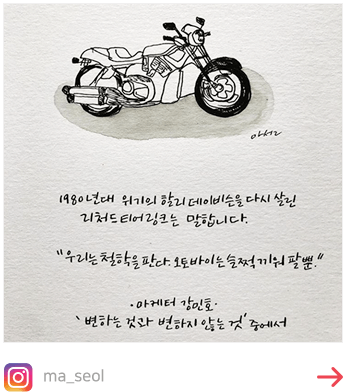 마설
1980년대 위기의 할리데이비슨을 다시 살린
리처드 티어링크는 말합니다.
"우리는 철학을 판다. 오토바이는 슬쩍 끼워 팔 뿐."
·마케터 강민호·
'변하는 것과 변하지 않는 것' 중에서
ma_seol